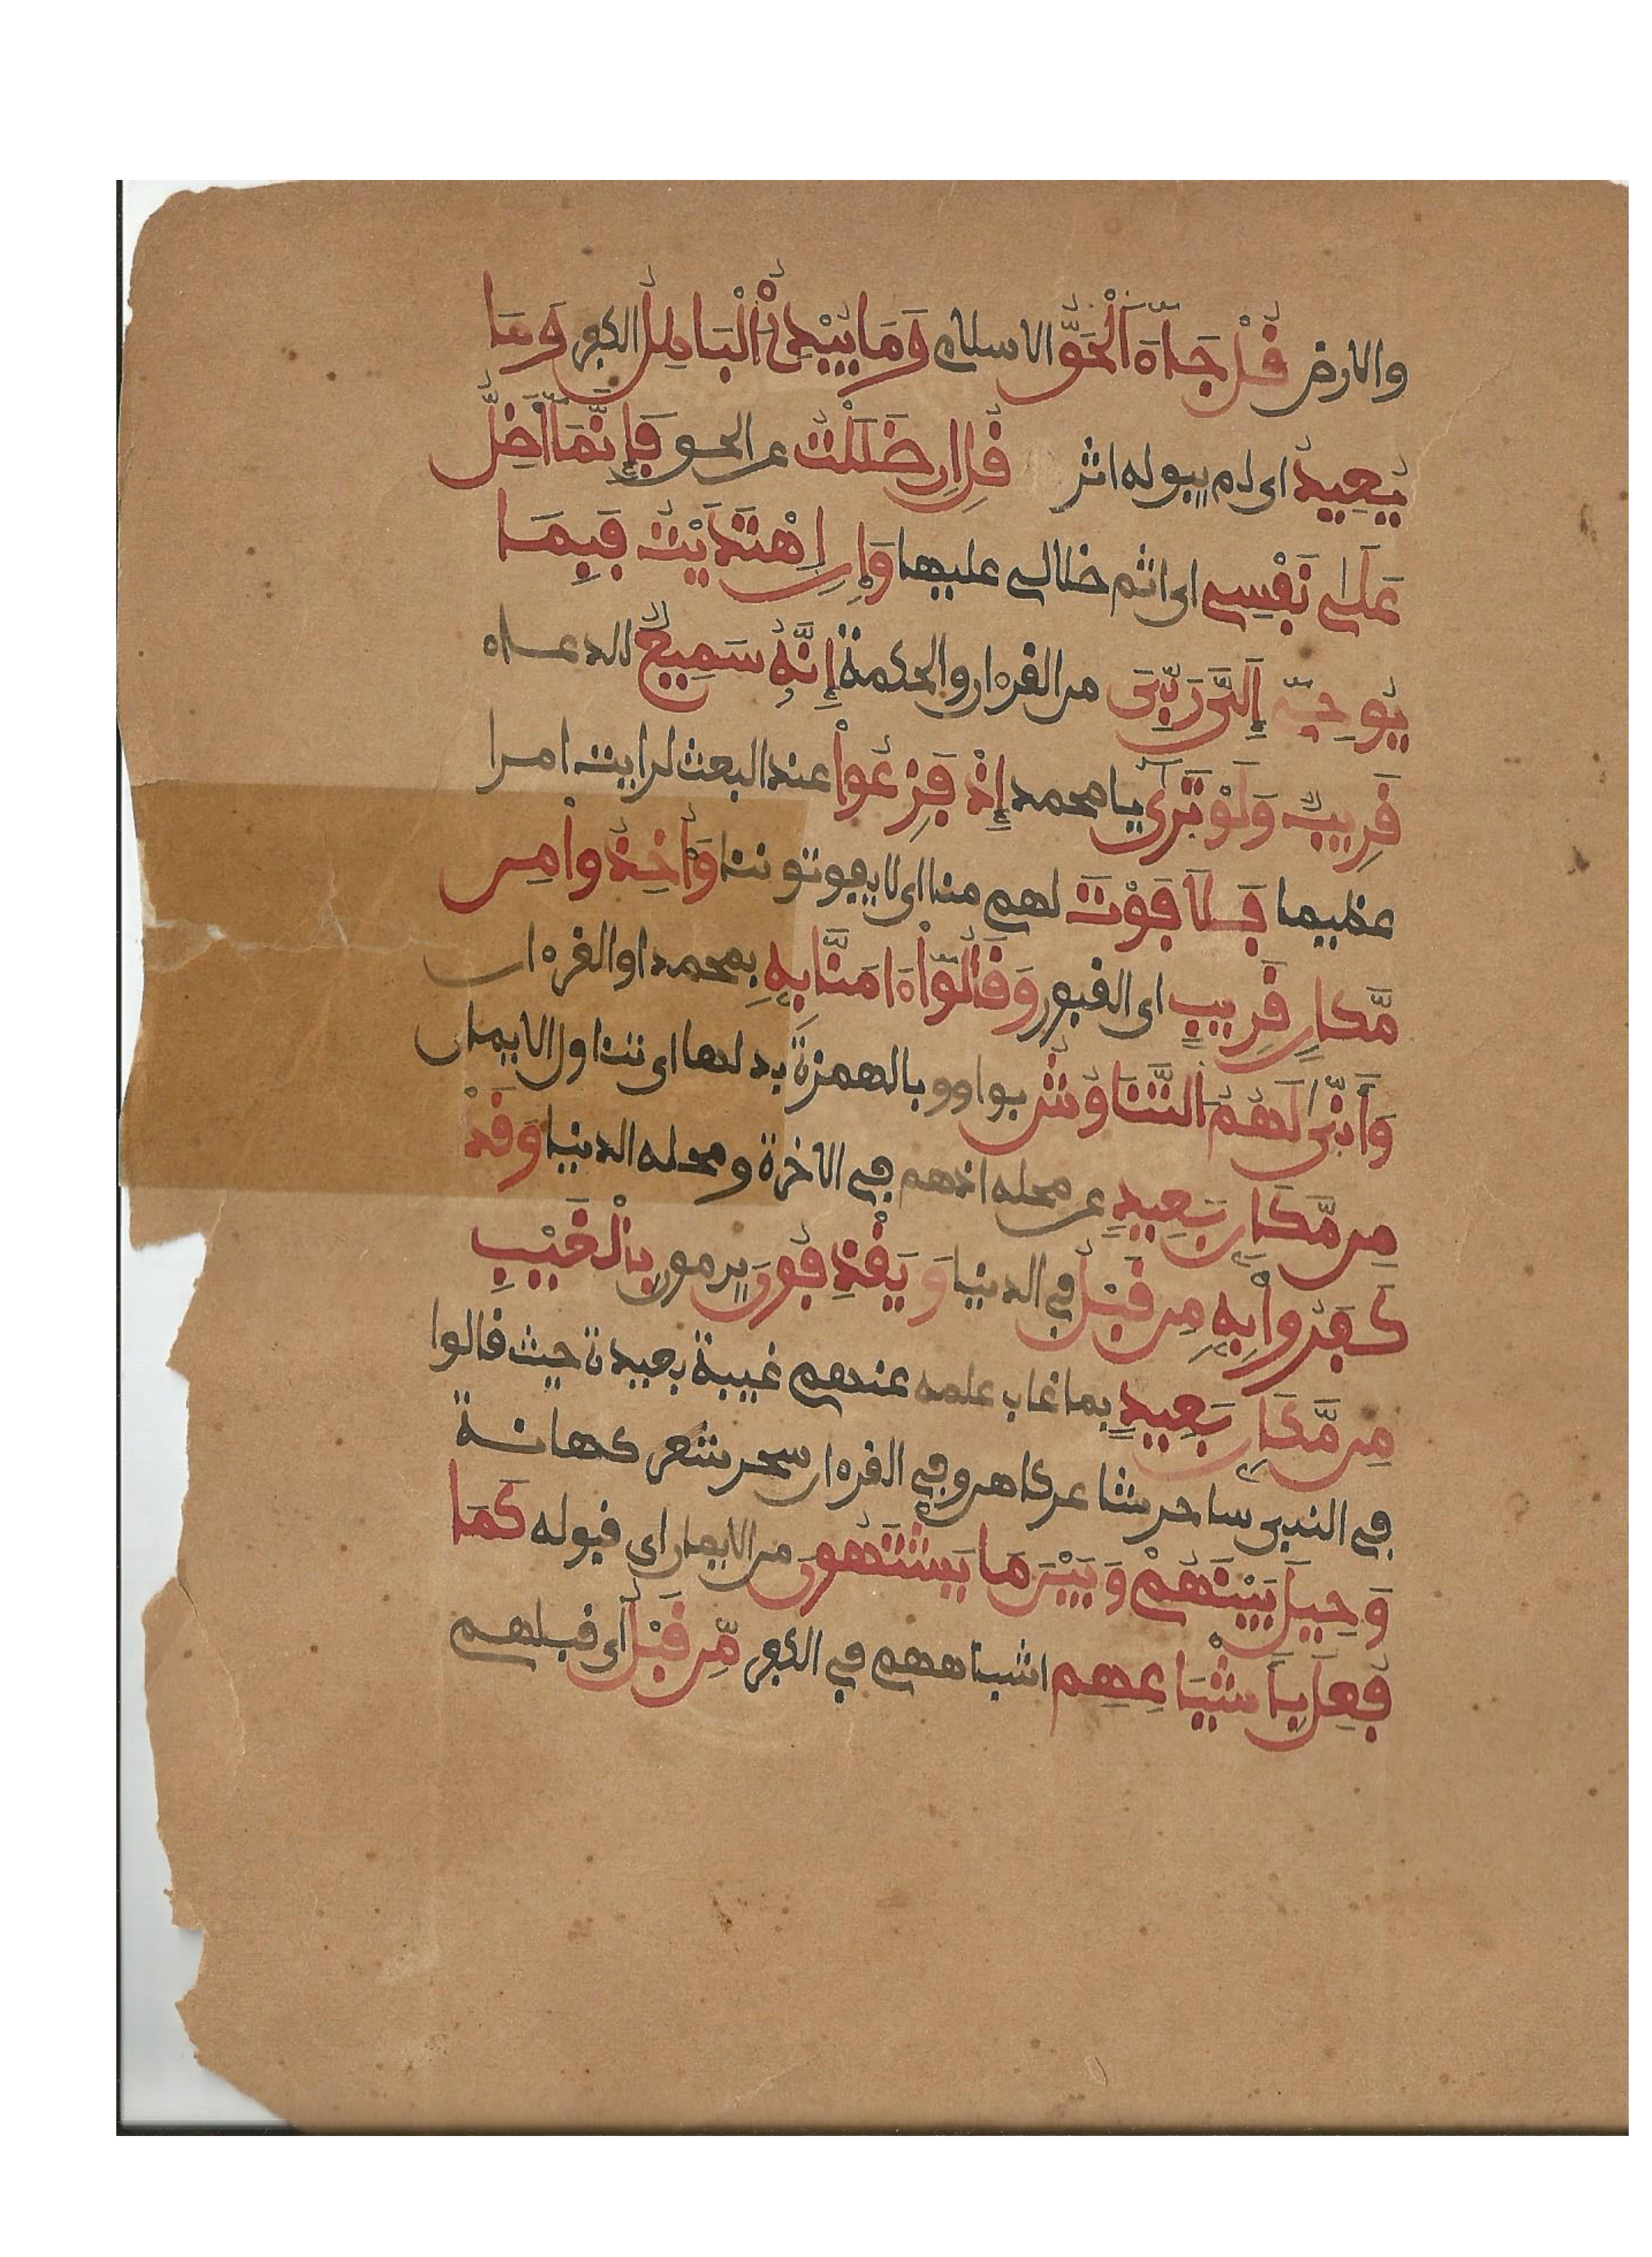 والارض قُلْ جَآءَ اَ۬لْحَقُّ الاسلام وَمَا يُبْدِئُ اُ۬لْبَٰطِلُ الكفر وَمَا
يُعِيدُ اى لم يبق له اثر قُلِ اِن ضَلَلْتُ عن الحق فَإِنَّمَآ أَضِلُّ
عَلَىٰ نَفْسِے اى اثم ضلالے عليها وَإِنِ اِ۪هْتَدَيْتُ فَبِمَا
يُوحِےٓ إِلَىَّ رَبِّىَ من القرءان والحكمة إِنَّهُۥ سَمِيعٌ للدعاء
قَرِيبٌ وَلَوْ تَرَىٰٓ يا محمد إِذْ فَزِعُواْ عند البعث لرايت امرا
عظيما فَلَا فَوْتَ لهم منا اى لا يفوتوننا وَأُخِذُواْ مِن
مَّكَانٍ قَرِيبٍ اى القبور وَقَالُوٓاْ ءَامَنَّا بِهِۦ بمحمد او القرءان
وَأَنّ۪ىٰ لَهُمُ اُ۬لتَّنَاوُشُ بواو وبالهمزة بدلها اى تناول الايمان
مِن مَّكَانٍۢ بَعِيدٍ عن محله اذ هم فے الاخرة ومحله الدنيا وَقَدْ
كَفَرُواْ بِهِۦ مِن قَبْلُ فے الدنيا وَيَقْذِفُونَ يرمون بِالْغَيْبِ
مِن مَّكَانٍۢ بَعِيدٍ بما غاب علمه عنهم غيبة بعيدة حيث قالوا
فے النبى ساحر شاعر كاهن وفے القرءان سحر شعر كهانة
وَحِيلَ بَيْنَهُمْ وَبَيْنَ مَا يَشْتَهُونَ من الايمان اى قبوله كَمَا
فُعِلَ بِأَشْيَاعِهِم اشباههم فے الكفر مِّن قَبْلُ اى قبلهم